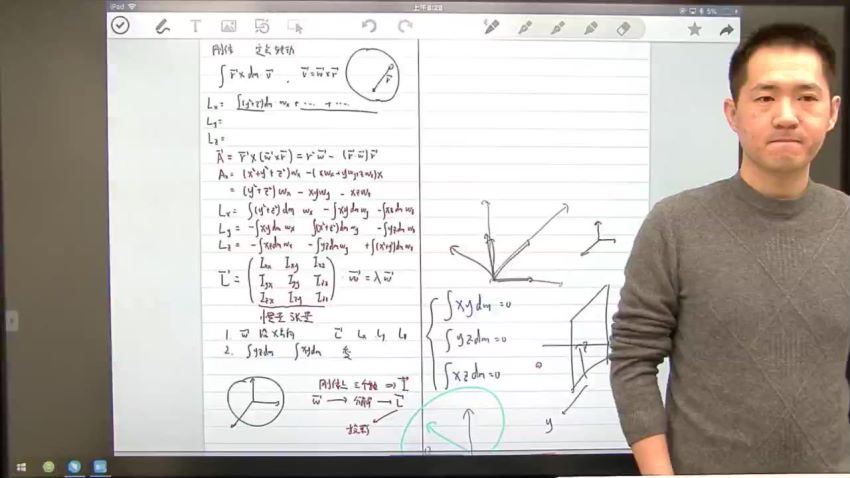 上午8:20
5%
刚体 定点转动
∫ r⃗ × dm v⃗ , v⃗ = w⃗ × r⃗
r⃗
Lx = ∫(y²+z²)dm wx + ⋯ + ⋯
Ly =
Lz =
A⃗ = r⃗ × (w⃗ × r⃗) = r² w⃗ − (r⃗·w⃗) r⃗
Ax = (x²+y²+z²)wx − (xwx + ywy + zwz)x
= (y²+z²)wx − xywy − xzwz
Lx = ∫(y²+z²)dm wx − ∫xydm wy − ∫xzdm wz
Ly = −∫xydm wx ∫(x²+z²)dm wy − ∫yzdm wz
Lz = −∫xzdm wx − ∫yzdm wy + ∫(x²+y²)dm wz
L⃗ = (Ixx Ixy Ixz
Iyx Iyy Iyz
Izx Izy Izz) · w⃗ = λ w⃗
惯量张量
1. w⃗ 沿x方向 L⃗ Lx Ly Lz
2. ∫yzdm ∫xydm 变
刚体上三个轴 ⇒ I⃗
w⃗ → 分解 → L⃗
∫xydm=0
∫yzdm=0
∫xzdm=0
z
y